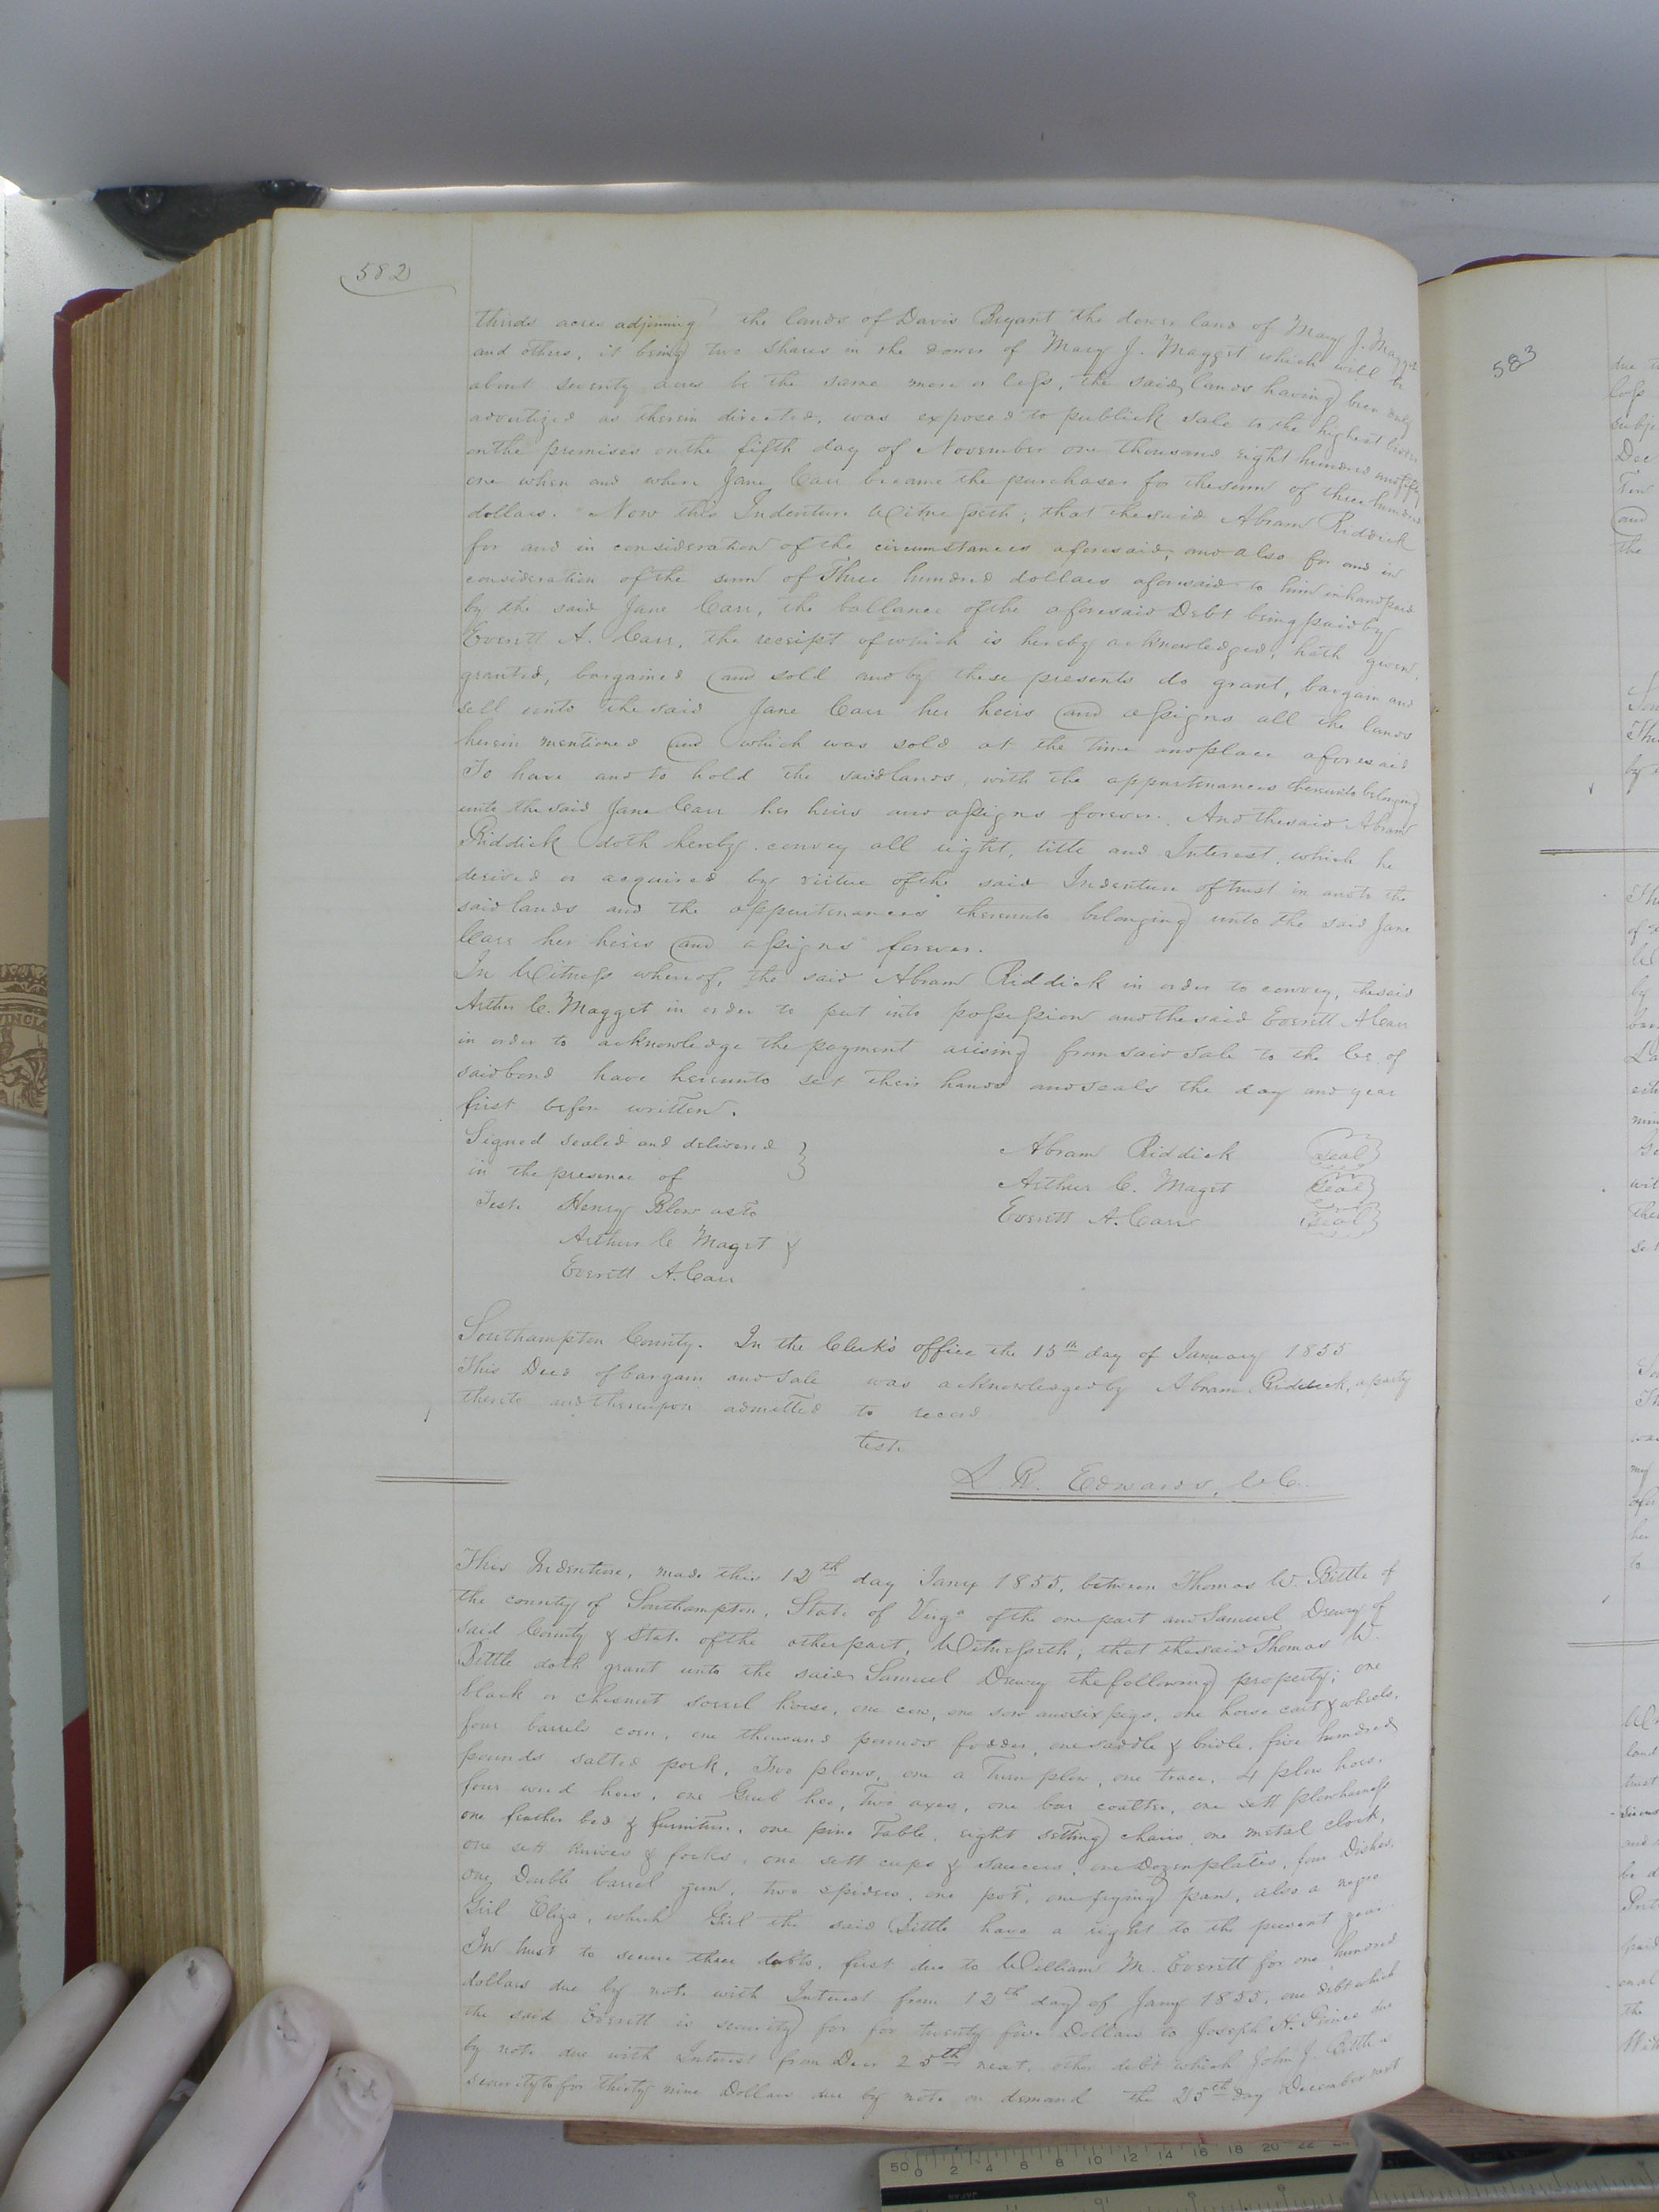 582
thirds acres adjoining the lands of Davis Bryant the dower land of Mary J. Magget
and others, it being two shares in the dower of Mary J. Magget which will be
about seventy acres be the same more or less, the said lands having been duly
advertized as therein directed, was exposed to publick sale to the highest bidder
on the premises on the fifth day of November one thousand eight hundred and fifty
one when and where Jane Carr became the purchaser for the sum of three hundred
dollars. Now this Indenture Witnesseth; that the said Abram Riddick
for and in consideration of the circumstances aforesaid, and also for and in
consideration of the sum of Three hundred dollars aforesaid to him in hand paid
by the said Jane Carr, the ballance of the aforesaid Debt being paid by
Everett A. Carr, the receipt of which is hereby acknowledged, hath given,
granted, bargained and sold and by these presents do grant, bargain and
sell unto the said Jane Carr her heirs and assigns all the lands
herein mentioned and which was sold at the time and place aforesaid
To have and to hold the said lands, with the appurtenances thereunto belonging
unto the said Jane Carr her heirs and assigns forever. And the said Abram
Riddick doth hereby convey all right, title and Interest, which he
derived or acquired by virtue of the said Indenture of trust in and to the
said lands and the appurtenances thereunto belonging unto the said Jane
Carr her heirs and assigns forever.
In Witness whereof, the said Abram Riddick in order to convey, the said
Arthur C. Magget in order to put into possession and the said Everett A Carr
in order to acknowledge the payment arising from said sale to the Cr. of
said bond have hereunto set their hands and seals the day and year
first before written.
Signed sealed and delivered
in the presence of
Test. Henry Blow as to
Arthur C Maget &
Everett A. Carr
Abram Riddick Seal
Arthur C. Maget Seal
Everett A. Carr Seal
Southampton County. In the Clerk's office the 15th day of January 1855
This Deed of bargain and sale was acknowledged by Abram Riddick, a party
thereto and thereupon admitted to record
Test.
L. R. Edwards, C C.
This Indenture, made this 12th day Jany 1855, between Thomas W. Bittle of
the county of Southampton, State of Virga of the one part and Samuel Drewry of
said County & State of the other part, Witnesseth; that the said Thomas W.
Bittle doth grant unto the said Samuel Drewry the following property; one
black or chesnut sorrel horse, one cow, one sow and six pigs, one horse cart & wheels,
four barrels corn, one thousand pounds fodder, one saddle & bridle, five hundred
pounds salted pork, Two plows, one a Turn plow, one trace, 4 plow hoes,
four weed hoes, one Grub hoe, Two axes, one bar coulter, one sett plow harness
one feather bed & furniture, one pine Table, eight setting chairs, one metal clock,
one sett knives & forks, one sett cups & saucers, one Dozen plates, four Dishes,
one Double barrel gun, two spiders, one pot, one frying pan, also a negro
Girl Eliza, which Girl the said Bittle have a right to the present year
In trust to secure three debts, first due to William M. Everett for one hundred
dollars due by note with Interest from 12th day of Jany 1855, one debt which
the said Everett is security for for twenty five Dollars to Joseph H. Prince due
by note due with Interest from Decr 25th next, other debt which John J. Bittle is
security to for thirty nine Dollars due by note on demand the 25th day December next
583
due
loss
subje
Dec
Ten
and
the